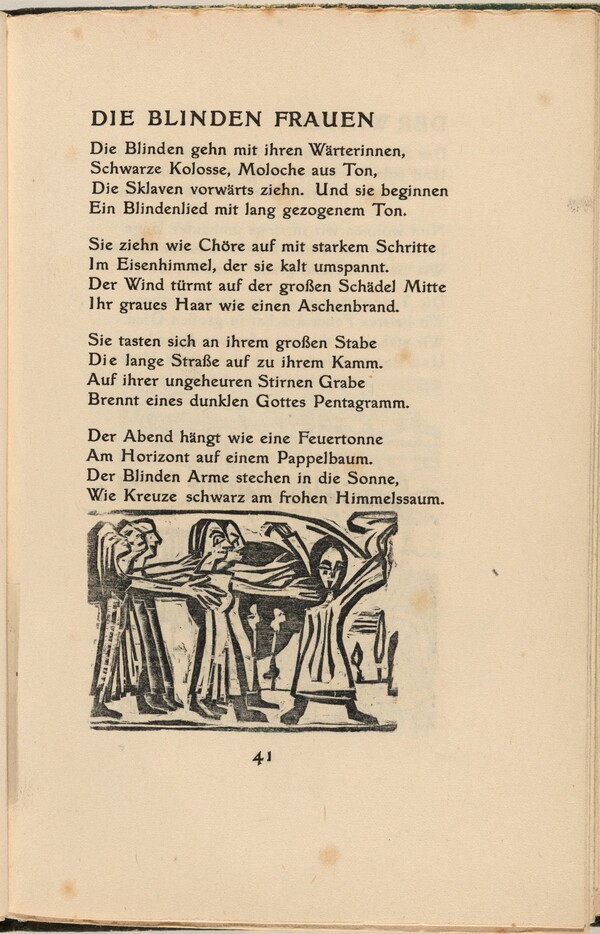 DIE BLINDEN FRAUEN
Die Blinden gehn mit ihren Wärterinnen,
Schwarze Kolosse, Moloche aus Ton,
Die Sklaven vorwärts ziehn. Und sie beginnen
Ein Blindenlied mit lang gezogenem Ton.
Sie ziehn wie Chöre auf mit starkem Schritte
Im Eisenhimmel, der sie kalt umspannt.
Der Wind türmt auf der großen Schädel Mitte
Ihr graues Haar wie einen Aschenbrand.
Sie tasten sich an ihrem großen Stabe
Die lange Straße auf zu ihrem Kamm.
Auf ihrer ungeheuren Stirnen Grabe
Brennt eines dunklen Gottes Pentagramm.
Der Abend hängt wie eine Feuertonne
Am Horizont auf einem Pappelbaum.
Der Blinden Arme stechen in die Sonne,
Wie Kreuze schwarz am frohen Himmelssaum.
41